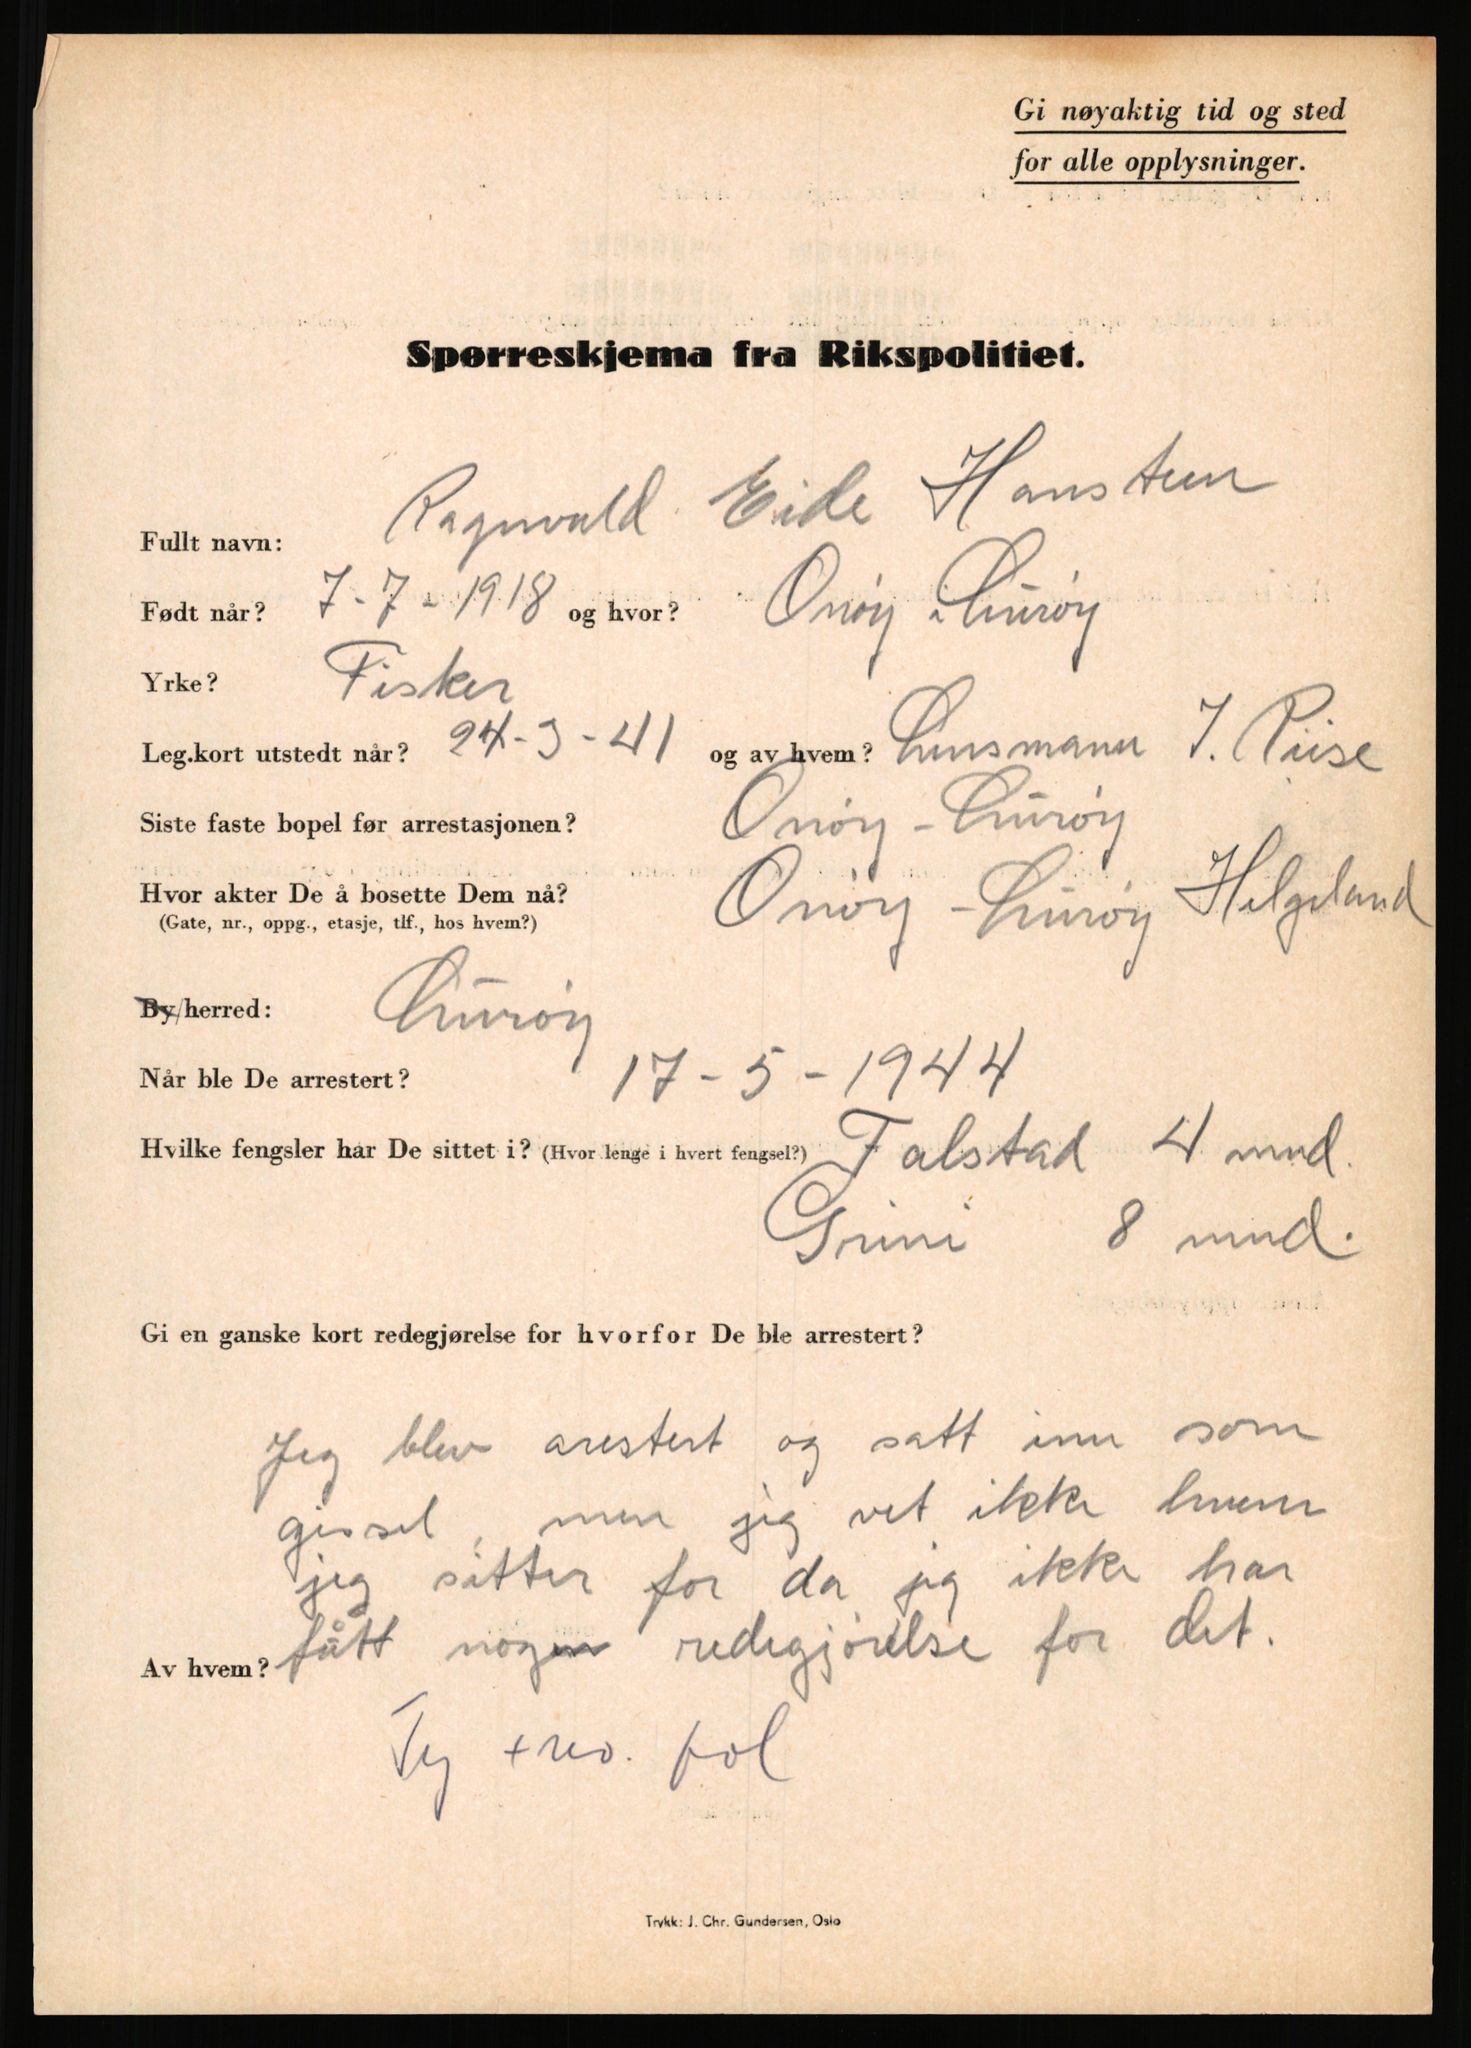 Gi nøyaktig tid og sted
for alle opplysninger.
Spørreskjema fra Rikspolitiet.
Fullt navn: Ragnvald Eide Hansteen
Født når? 7-7-1918 og hvor? Onøy i Lurøy
Yrke? Fisker
Leg.kort utstedt når? 24-3-41 og av hvem? Lensmann J. Riise
Siste faste bopel før arrestasjonen? Onøy - Lurøy
Hvor akter De å bosette Dem nå? Onøy - Lurøy Helgeland
(Gate, nr., oppg., etasje, tlf., hos hvem?)
By/herred: Lurøy
Når ble De arrestert? 17-5-1944
Hvilke fengsler har De sittet i? (Hvor lenge i hvert fengsel?) Falstad 4 mnd.
Grini 8 mnd.
Gi en ganske kort redegjørelse for hvorfor De ble arrestert?
Jeg blev arestert og satt inn som
gissel, men jeg vet ikke hvem
jeg sitter for da jeg ikke har
fått nogen redegjørelse for det.
Av hvem?
pol
Trykk: J. Chr. Gundersen, Oslo